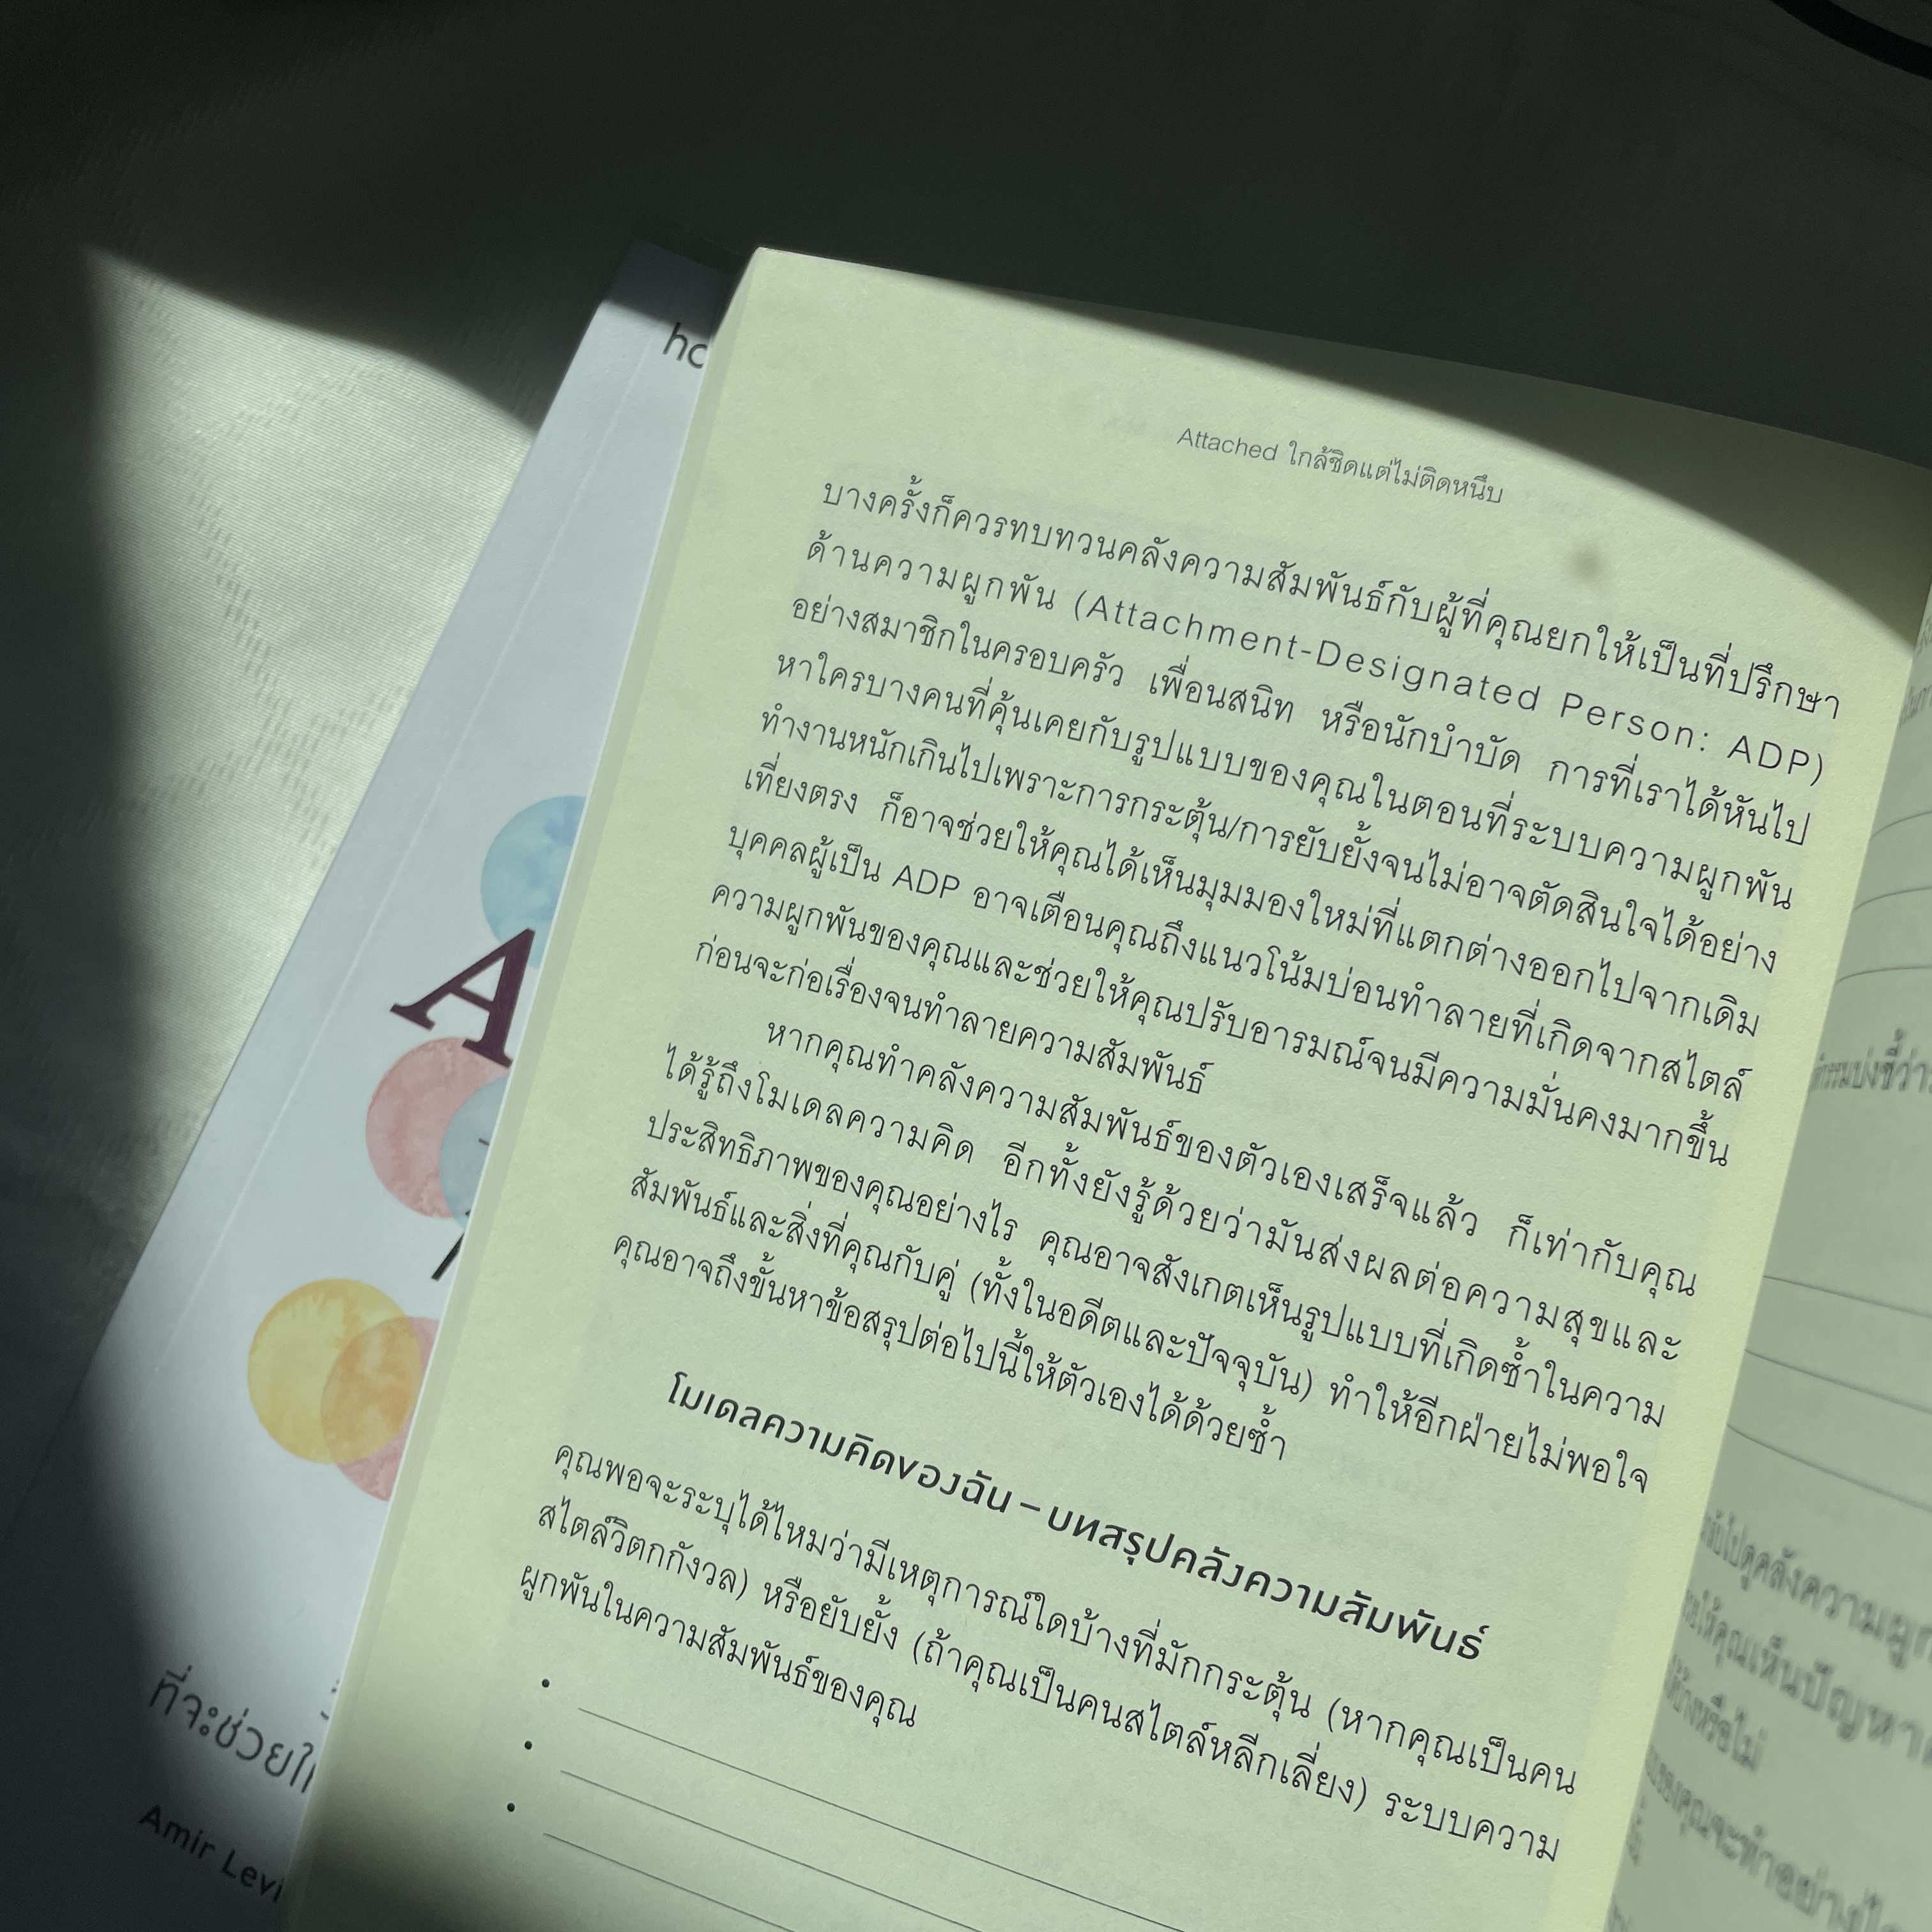 Attached ใกล้ชิดแต่ไม่ติดหนึบ
บางครั้งก็ควรทบทวนคลังความสัมพันธ์กับผู้ที่คุณยกให้เป็นที่ปรึกษา
ด้านความผูกพัน (Attachment-Designated Person: ADP)
อย่างสมาชิกในครอบครัว เพื่อนสนิท หรือนักบำบัด การที่เราได้หันไป
หาใครบางคนที่คุ้นเคยกับรูปแบบของคุณในตอนที่ระบบความผูกพัน
ทำงานหนักเกินไปเพราะการกระตุ้น/การยับยั้งจนไม่อาจตัดสินใจได้อย่าง
เที่ยงตรง ก็อาจช่วยให้คุณได้เห็นมุมมองใหม่ที่แตกต่างออกไปจากเดิม
บุคคลผู้เป็น ADP อาจเตือนคุณถึงแนวโน้มบ่อนทำลายที่เกิดจากสไตล์
ความผูกพันของคุณและช่วยให้คุณปรับอารมณ์จนมีความมั่นคงมากขึ้น
ก่อนจะก่อเรื่องจนทำลายความสัมพันธ์
หากคุณทำคลังความสัมพันธ์ของตัวเองเสร็จแล้ว ก็เท่ากับคุณ
ได้รู้ถึงโมเดลความคิด อีกทั้งยังรู้ด้วยว่ามันส่งผลต่อความสุขและ
ประสิทธิภาพของคุณอย่างไร คุณอาจสังเกตเห็นรูปแบบที่เกิดซ้ำในความ
สัมพันธ์และสิ่งที่คุณกับคู่ (ทั้งในอดีตและปัจจุบัน) ทำให้อีกฝ่ายไม่พอใจ
คุณอาจถึงขั้นหาข้อสรุปต่อไปนี้ให้ตัวเองได้ด้วยซ้ำ
โมเดลความคิดของฉัน – บทสรุปคลังความสัมพันธ์
คุณพอจะระบุได้ไหมว่ามีเหตุการณ์ใดบ้างที่มักกระตุ้น (หากคุณเป็นคน
สไตล์วิตกกังวล) หรือยับยั้ง (ถ้าคุณเป็นคนสไตล์หลีกเลี่ยง) ระบบความ
ผูกพันในความสัมพันธ์ของคุณ
A
ที่จะช่วยให้
Amir Levi